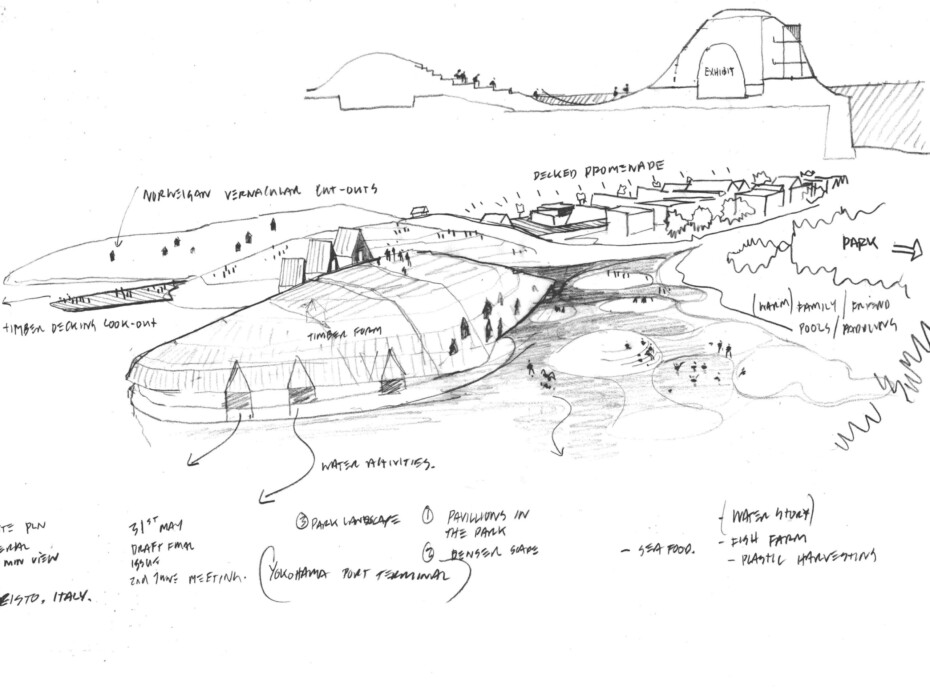 EXHIBIT
DECKED PROMENADE
NORWEIGAN VERNACULAR CUT-OUTS
PARK
(WARM) FAMILY / FRIEND
POOLS /
TIMBER DECKING LOOK-OUT
TIMBER FORM
WATER ACTIVITIES.
TE PLN
31ST MAY
DRAFT FINAL
ISSUE
2ND JUNE MEETING.
MIN VIEW
EISTO, ITALY.
③ PARK LANDSCAPE
① PAVILLIONS IN
THE PARK
② DENSER
(YOKOHAMA PORT TERMINAL)
- SEA FOOD.
- (WATER STORY)
- FISH FARM
- PLASTIC HARVESTING